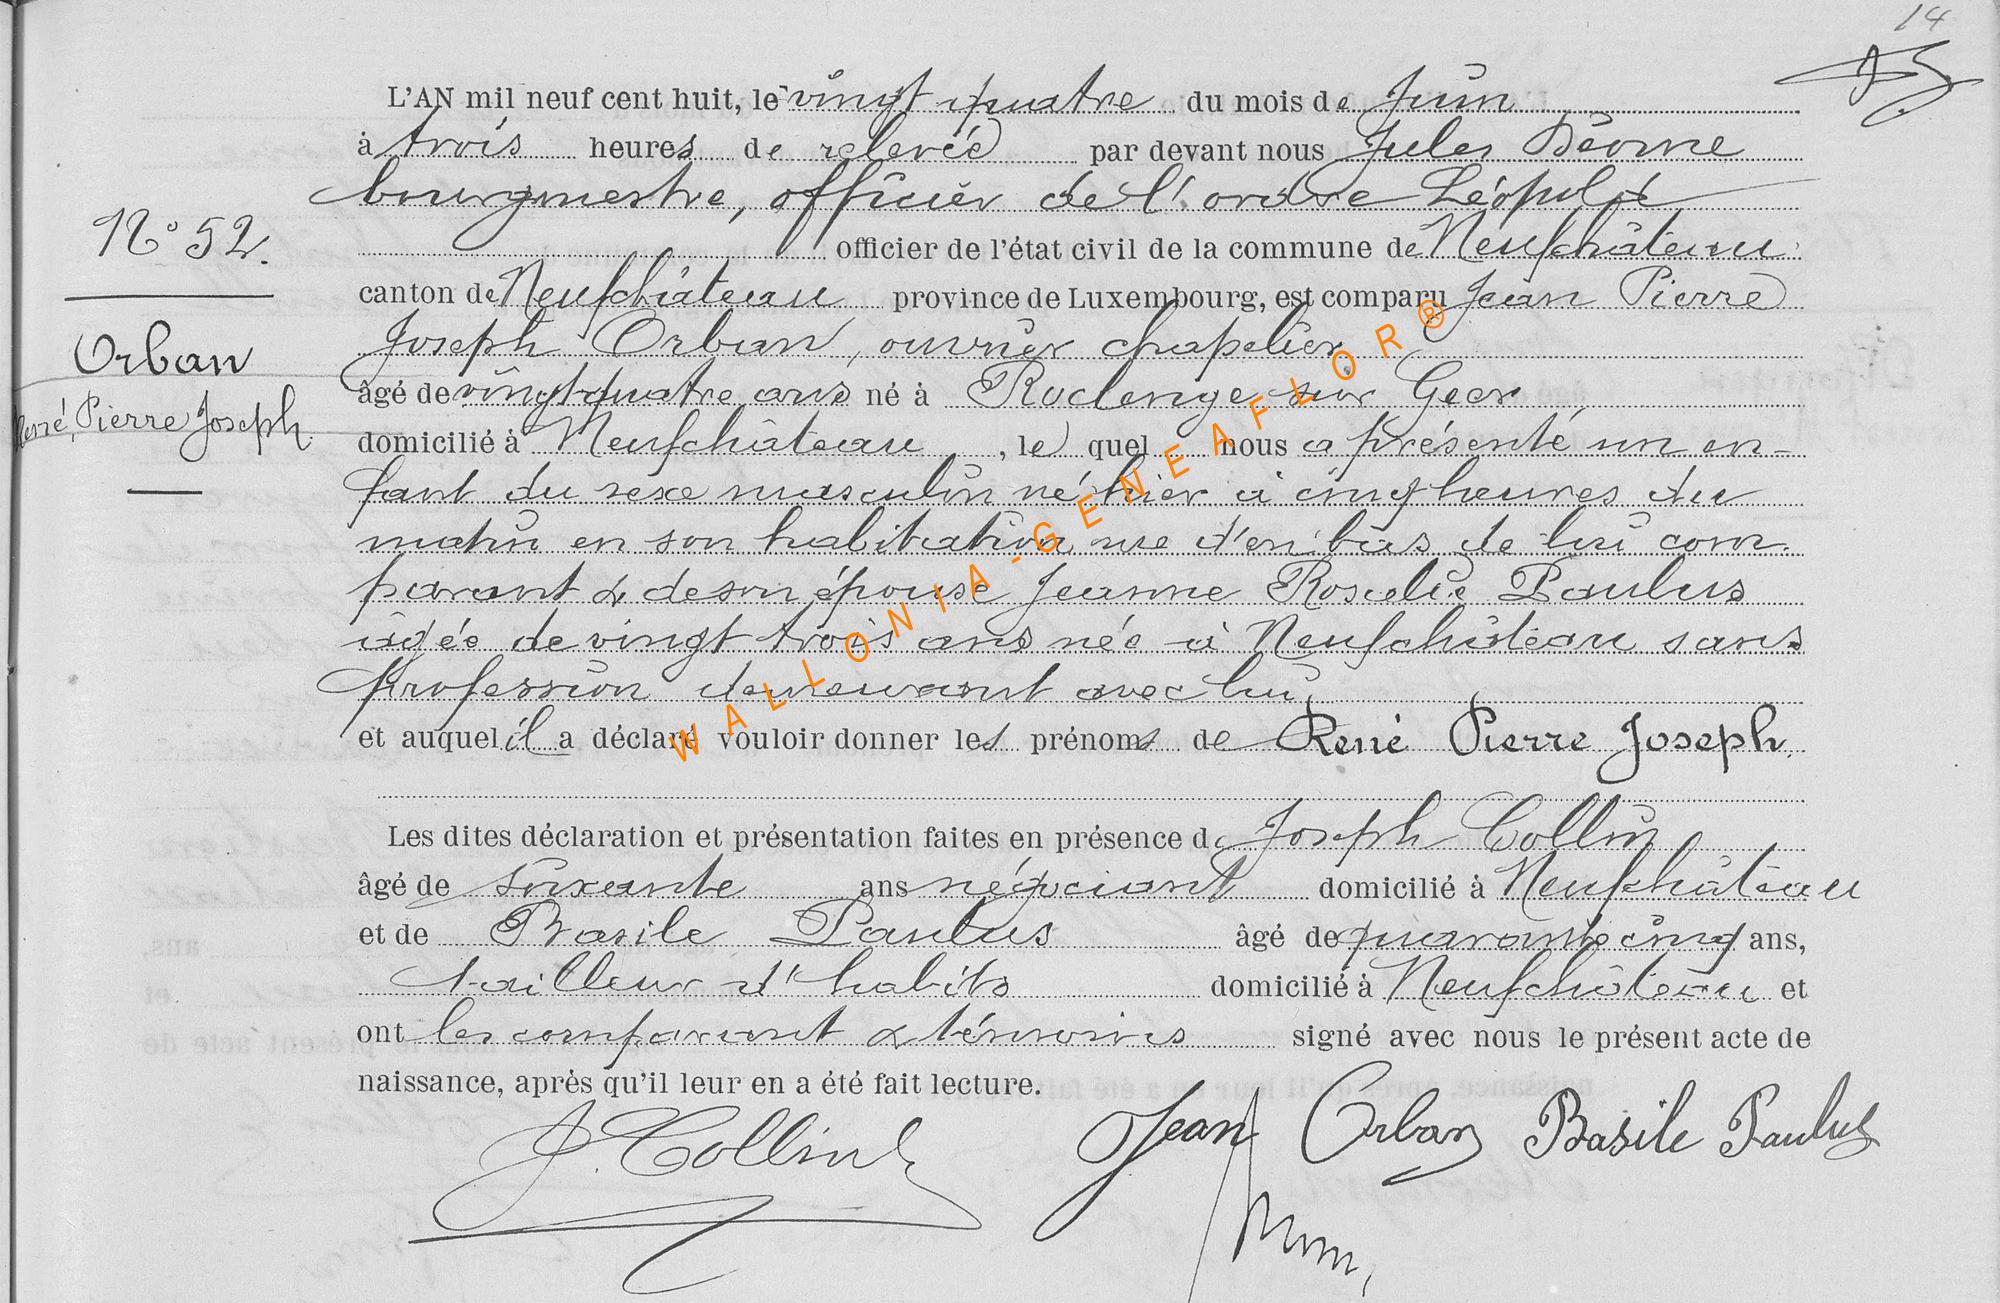 14
L'AN mil neuf cent huit, le vingt quatre du mois de Juin
à trois heures de relevée par devant nous Jules
bourgmestre, officier de l'ordre Léopold
officier de l'état civil de la commune de Neufchâteau
canton de Neufchâteau province de Luxembourg, est comparu Jean Pierre
Joseph Orban, ouvrier chapelier
âgé de vingt-quatre ans né à Roclenge sur Geer
domicilié à Neufchâteau, le quel nous a présenté un en-
fant du sexe masculin né hier à cinq heures du
matin en son habitation rue d'en bas de lui com-
parant & de son épouse Jeanne Rosalie Paulus
âgée de vingt trois ans née à Neufchâteau sans
profession demeurant avec lui
et auquel il a déclaré vouloir donner les prénoms de René Pierre Joseph.
Les dites déclaration et présentation faites en présence de Joseph Collin
âgé de soixante ans négociant domicilié à Neufchâteau
et de Basile Paulus âgé de quarante cinq ans,
tailleur d'habits domicilié à Neufchâteau et
ont les comparant & témoins signé avec nous le présent acte de
naissance, après qu'il leur en a été fait lecture.
N° 52.
Orban
René, Pierre Joseph
J. Collin
Jean Orban
Basile Paulus
WALLONIA-GENEAFLOR®